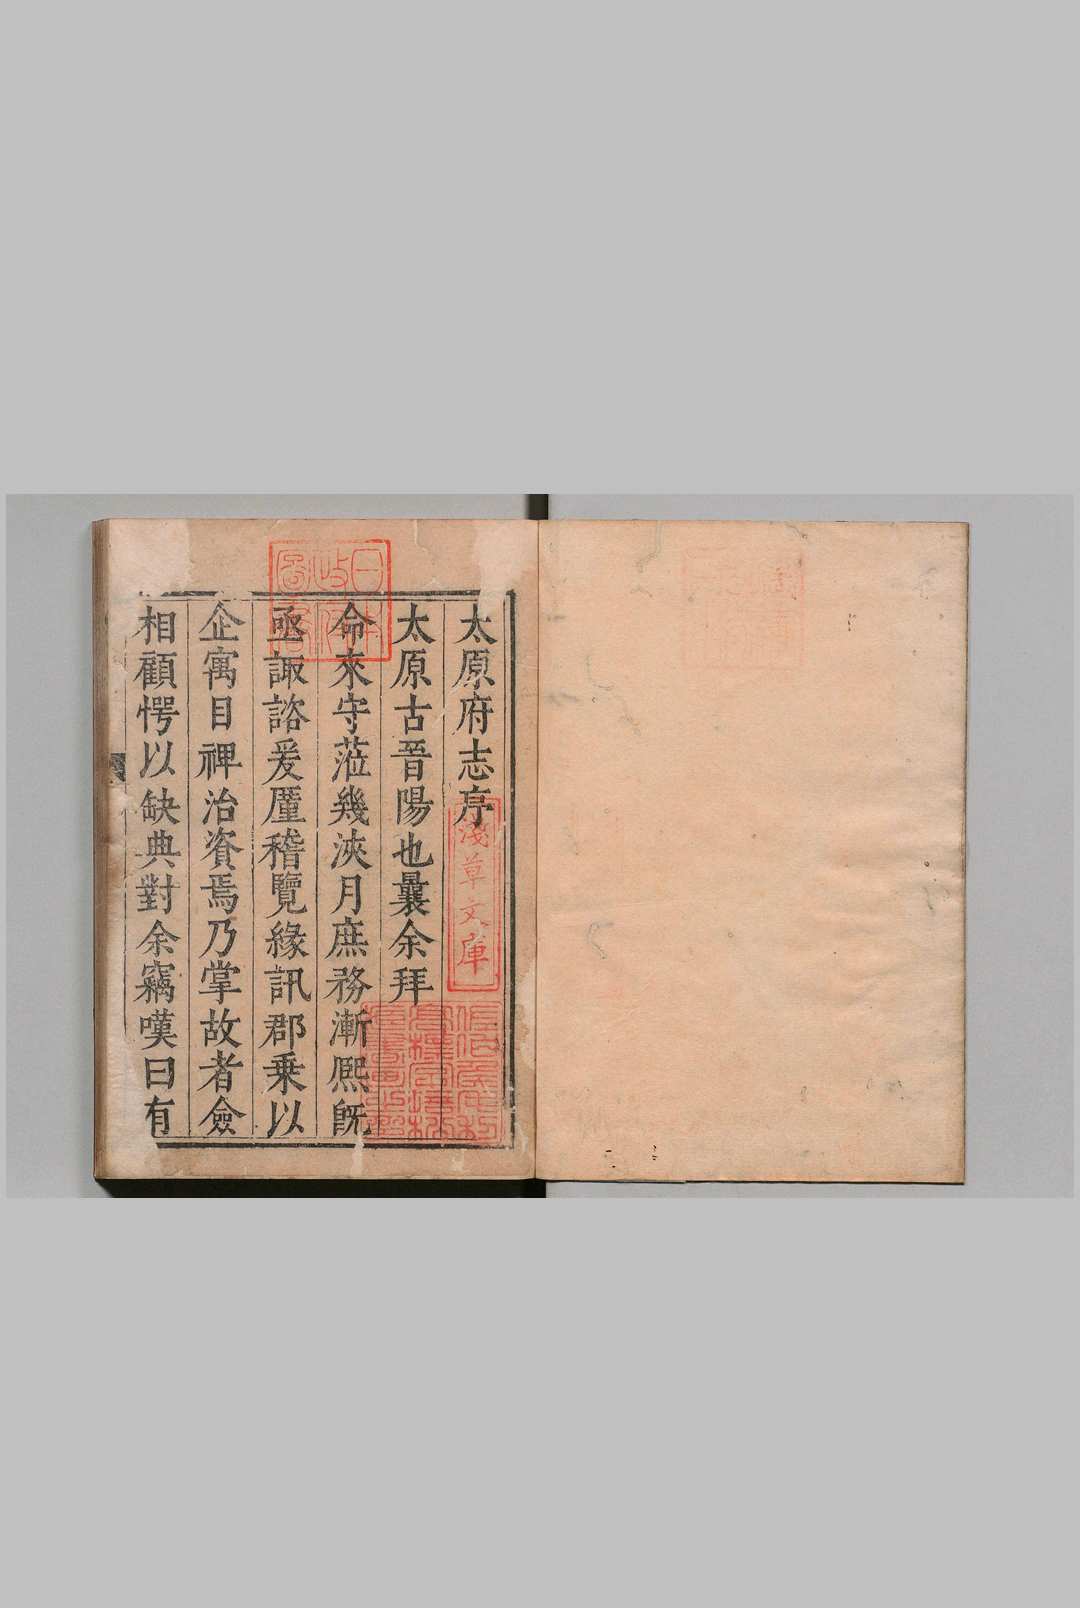 太原府志序
太原古晉陽也曩余拜
命來守蒞幾浹月庶務漸熈旣
亟諏諮爰厪稽覽緣訊郡乗以
企寓目裨治資焉乃掌故者僉
相顧愕以缺典對余竊嘆曰有
日本政府圖書
淺草文庫